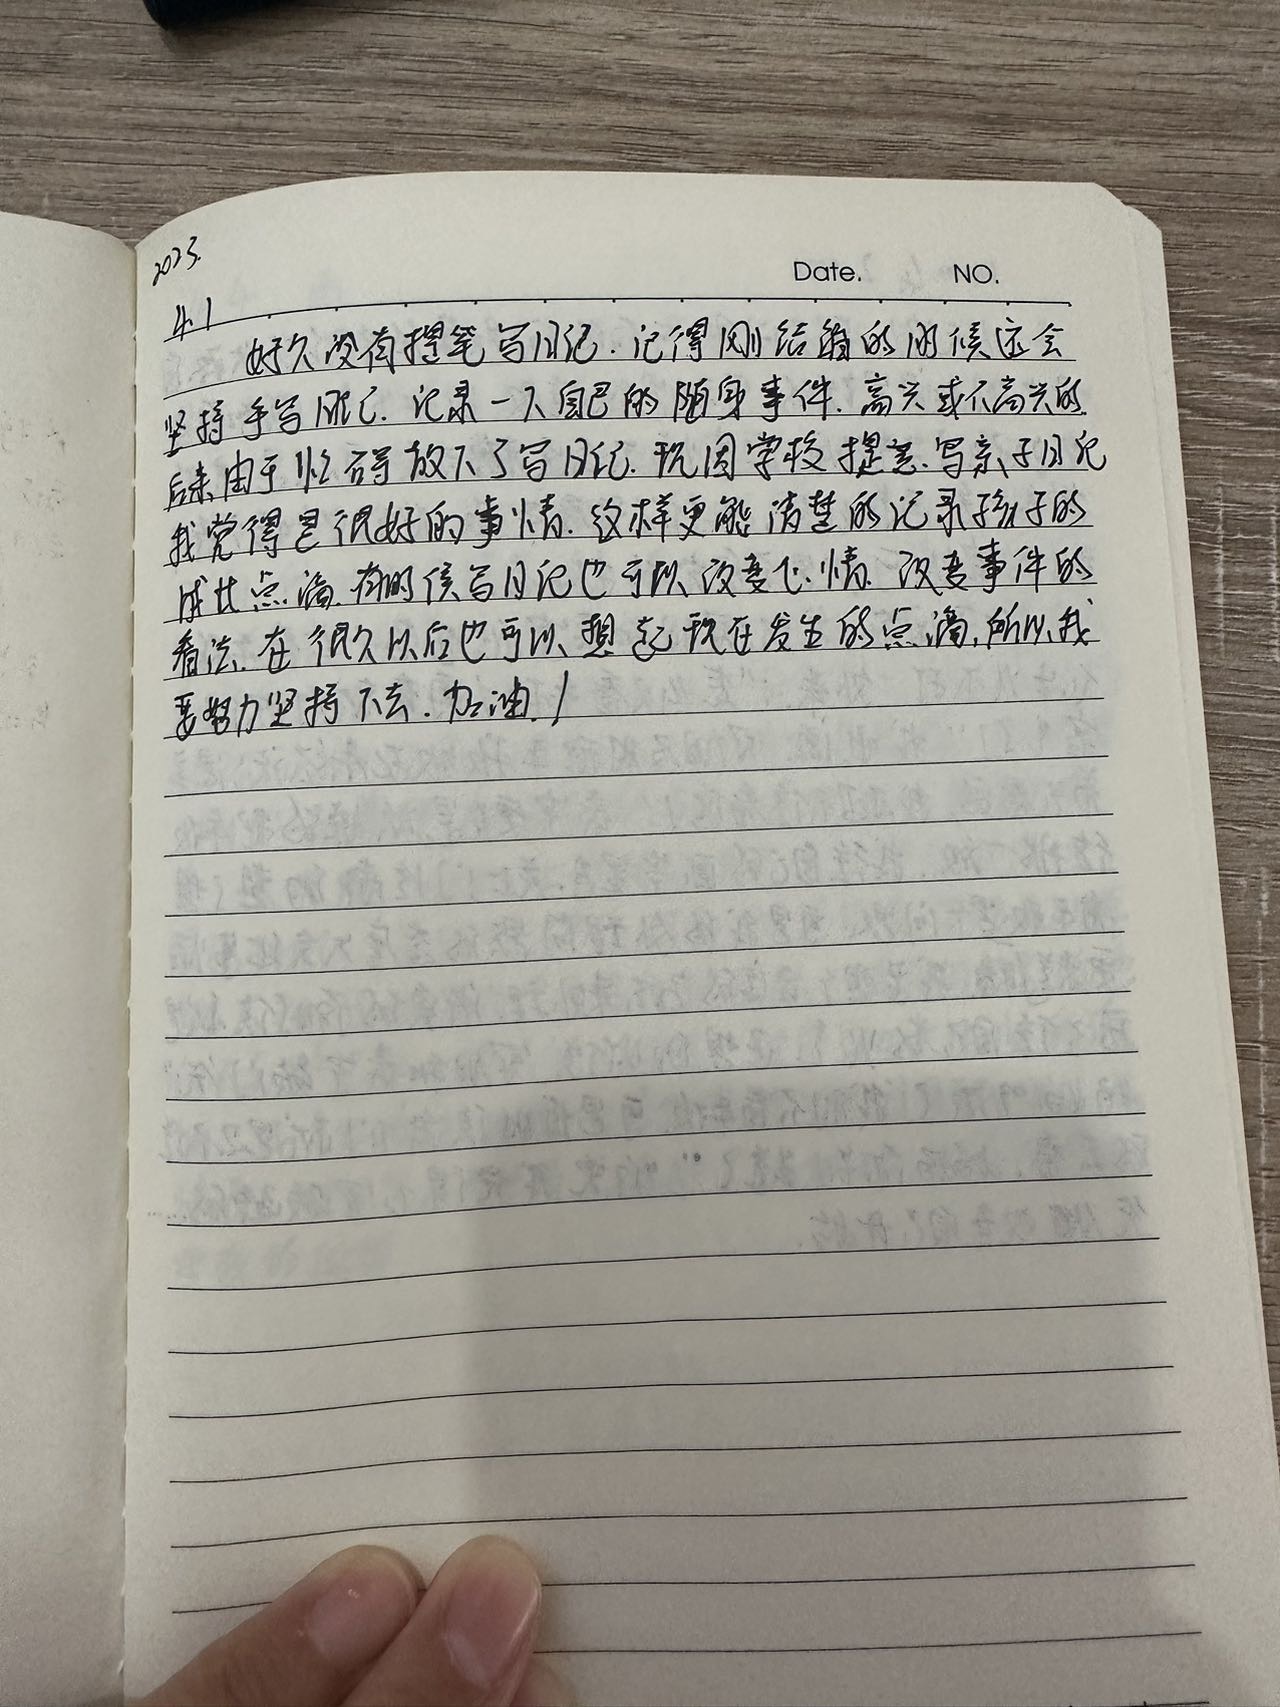 2023.
Date. NO.
4.1
好久没有提笔写日记.记得刚结婚的时候还会
坚持手写日记.记录一下自己的随身事件.高兴或不高兴的.
后来由于忙碌放下了写日记.现因学校提意.写亲子日记
我觉得是很好的事情.这样更能清楚的记录孩子的
成长点滴.有时候写日记也可以改变心情.改变事件的
看法.在很久以后也可以想起现在发生的点滴,所以我
要努力坚持下去.加油!